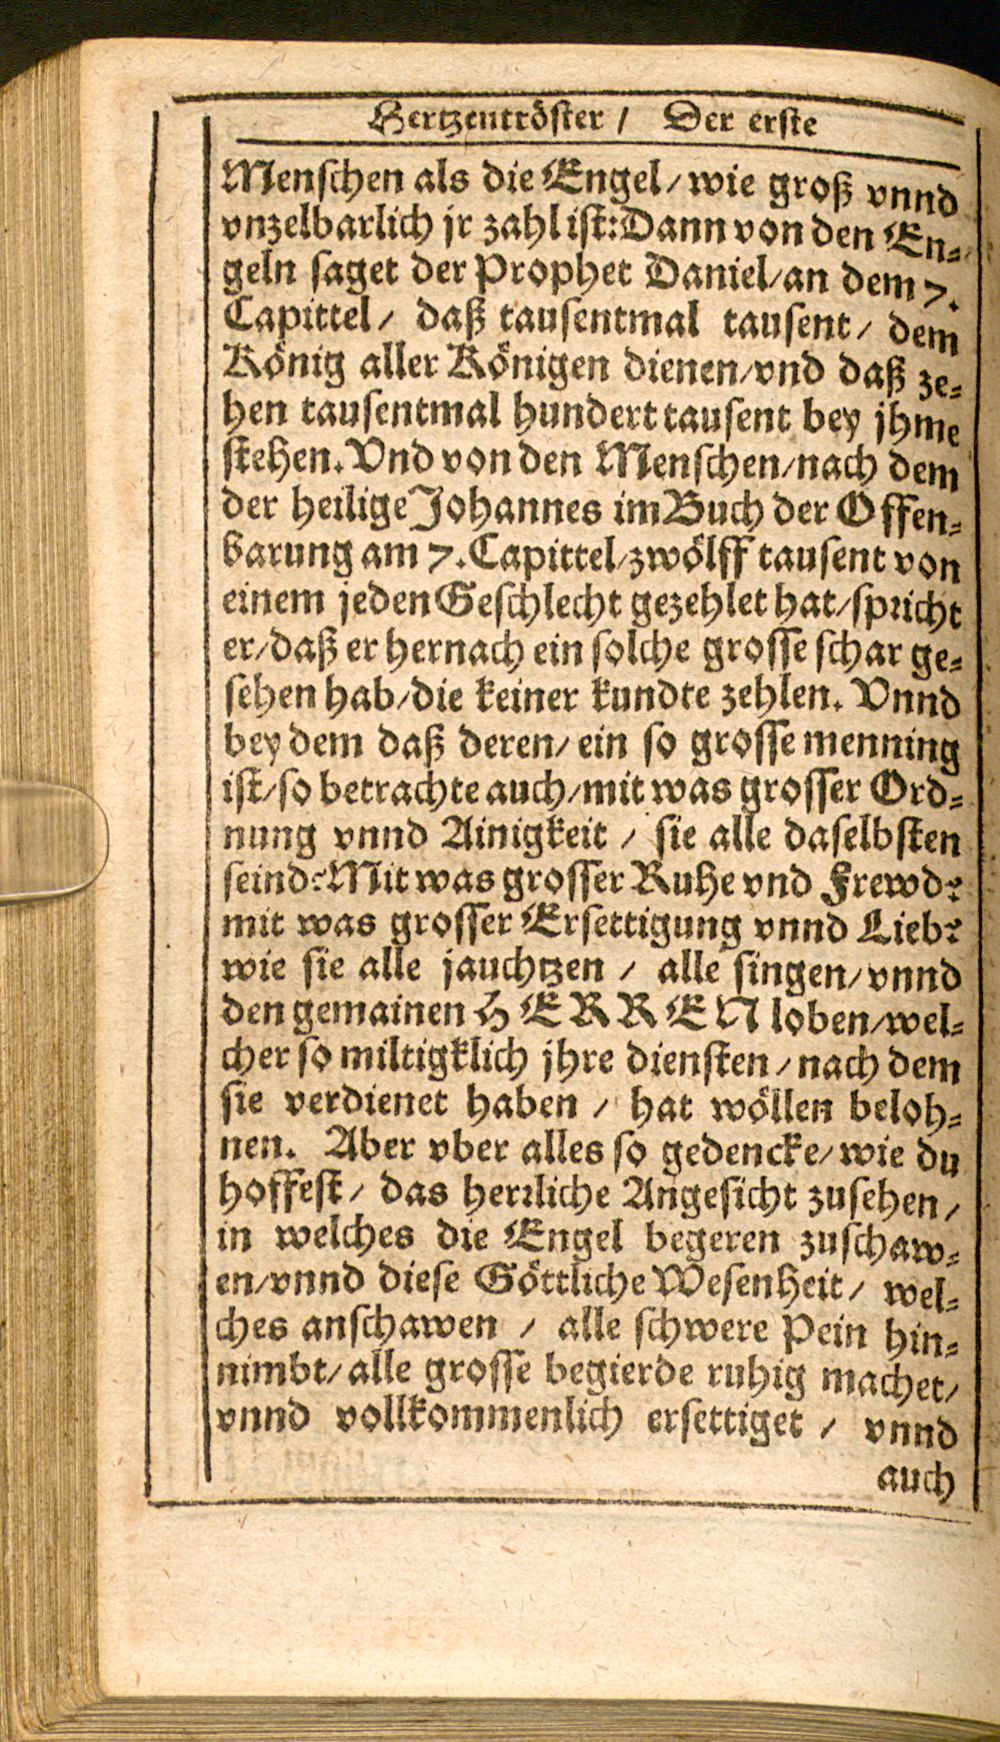 Hertzentröster / Der erste
Menschen als die Engel / wie groß vnnd
vnzelbarlich jr zahl ist: Dann von den En⸗
geln saget der Prophet Daniel / an dem 7.
Capittel / daß tausentmal tausent / dem
König aller Königen dienen / vnd daß ze⸗
hen tausentmal hundert tausent bey jhme
stehen. Vnd von den Menschen / nach dem
der heilige Johannes im Buch der Offen⸗
barung am 7. Capittel / zwölff tausent von
einem jeden Geschlecht gezehlet hat / spricht
er / daß er hernach ein solche grosse schar ge⸗
sehen hab / die keiner kundte zehlen. Vnnd
bey dem daß deren / ein so grosse menning
ist / so betrachte auch / mit was grosser Ord⸗
nung vnnd Ainigkeit / sie alle daselbsten
seind? Mit was grosser Ruhe vnd Frewd?
mit was grosser Ersettigung vnnd Lieb?
wie sie alle jauchtzen / alle singen / vnnd
den gemainen HERREN loben / wel⸗
cher so miltigklich jhre diensten / nach dem
sie verdienet haben / hat wöllen beloh⸗
nen. Aber vber alles so gedencke / wie du
hoffest / das herrliche Angesicht zusehen /
in welches die Engel begeren zuschaw⸗
en / vnnd diese Göttliche Wesenheit / wel⸗
ches anschawen / alle schwere Pein hin⸗
nimbt / alle grosse begierde ruhig machet /
vnnd vollkommenlich ersettiget / vnnd
auch